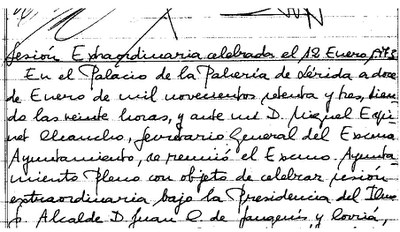 Sesión Extraordinaria celebrada el 12 Enero 1973
En el Palacio de la Pahería de Lérida a doce
de Enero de mil novecientos setenta y tres, sien-
do las veinte horas, y ante mi D. Miguel Espi-
net Chancho, Secretario General del Excmo.
Ayuntamiento, se reunió el Excmo. Ayunta-
miento Pleno con objeto de celebrar sesión
extraordinaria bajo la Presidencia del Ilmo
S. Alcalde D. Juan C. de Sangenís y Corriá,